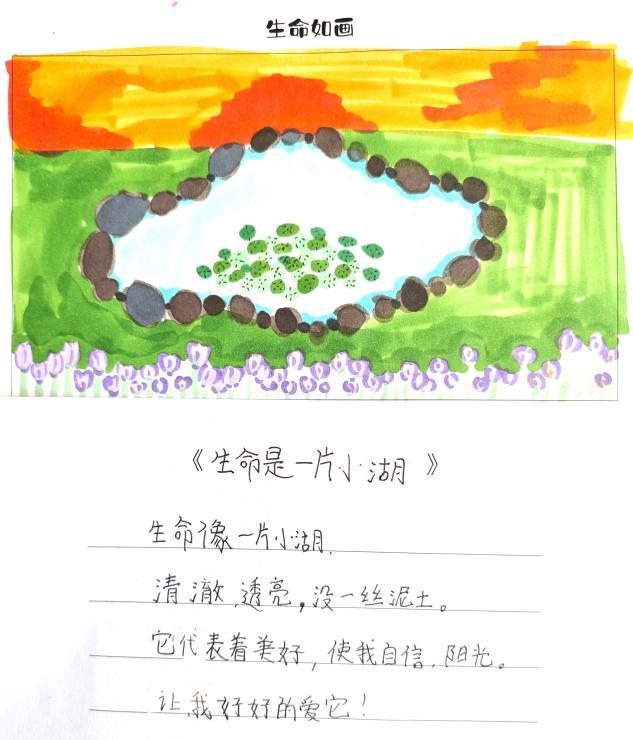 生命如画
《生命是一片小湖》
生命像一片小湖,
清澈、透亮,没一丝泥土。
它代表着美好,使我自信、阳光。
让我好好的爱它!